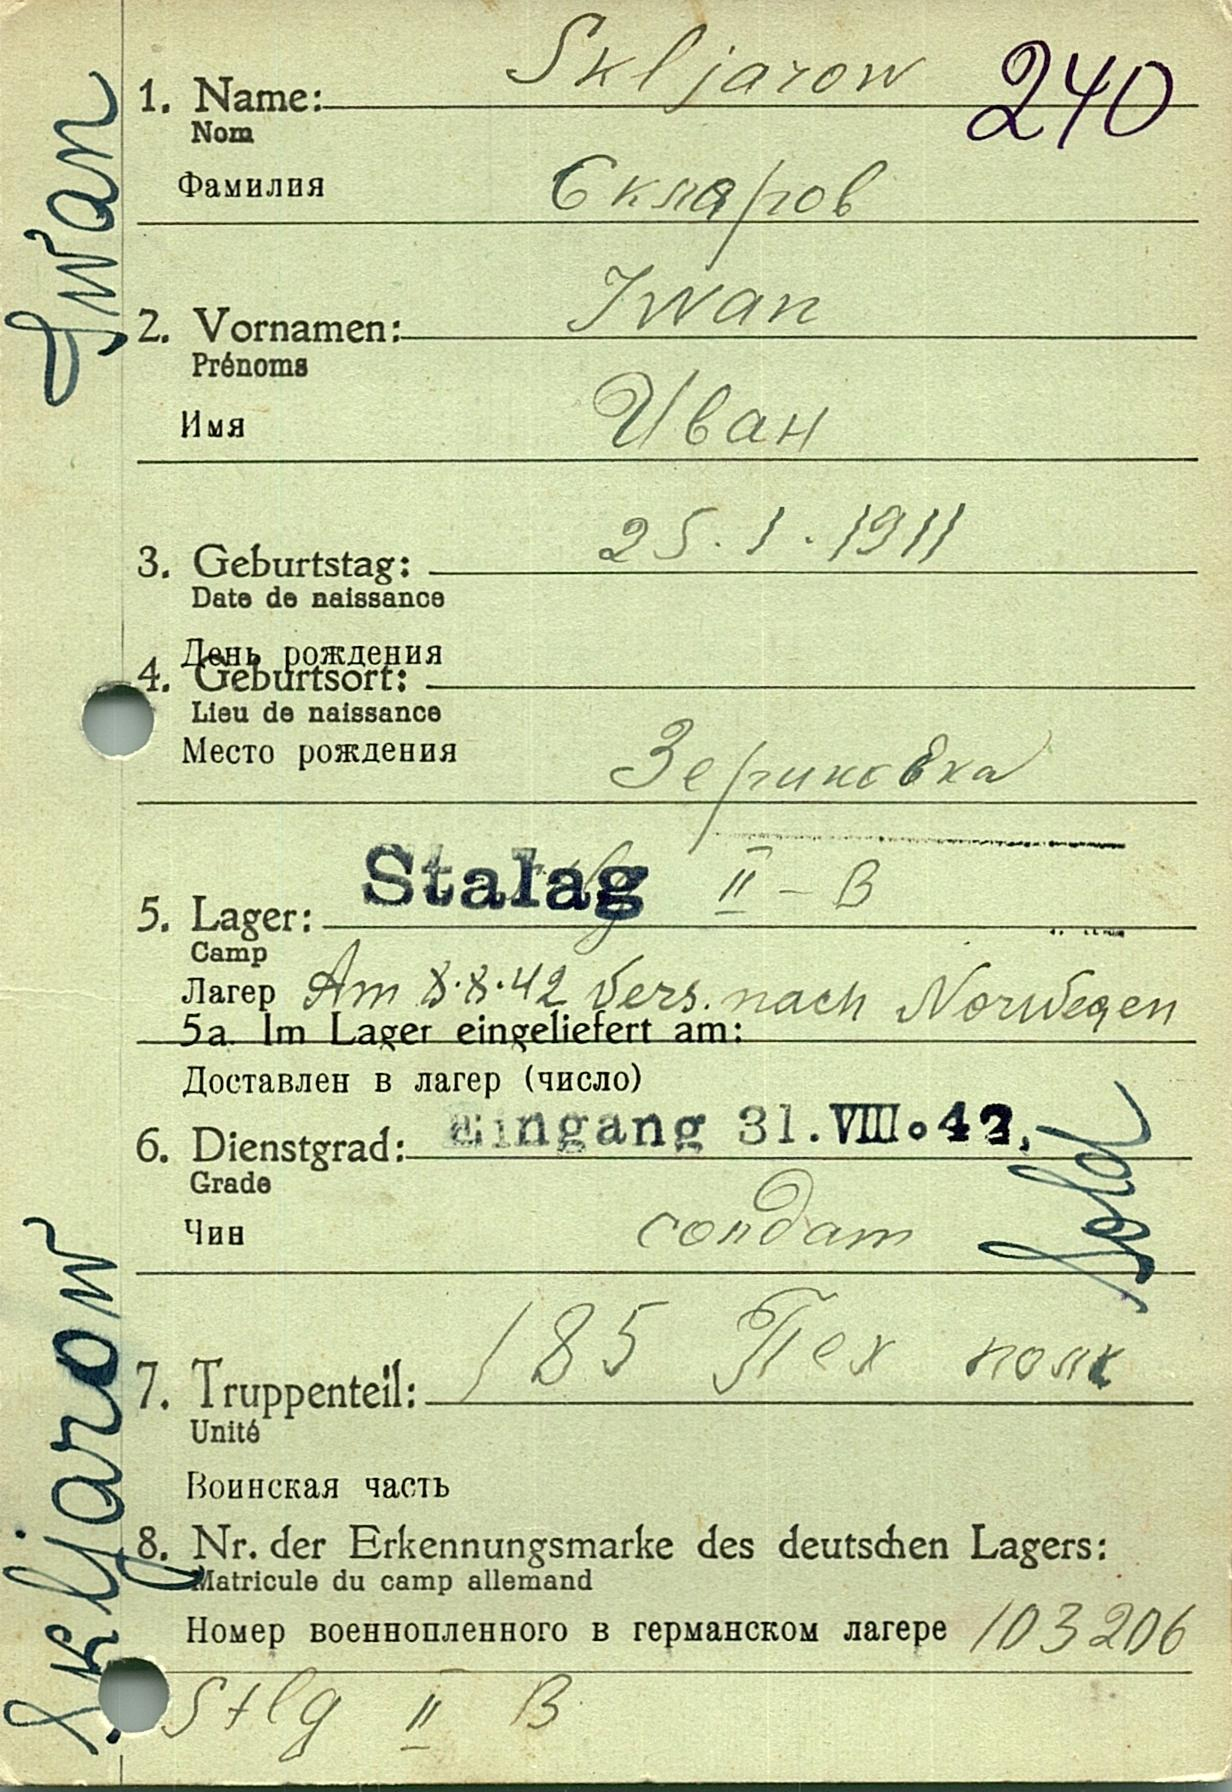 Skljarow 240
1. Name:
Nom
Фамилия Скляров
Iwan
2. Vornamen:
Prénoms
Имя Иван
25.1.1911
3. Geburtstag:
Date de naissance
День рождения
4. Geburtsort:
Lieu de naissance
Место рождения
Stalag II-B
5. Lager:
Camp
Лагер Am 8.8.42 Vers. nach Norwegen
5a. Im Lager eingeliefert am:
Доставлен в лагер (число)
Eingang 31.VIII.42.
6. Dienstgrad:
Grade
Чин солдат Sold
185 Пех полк
7. Truppenteil:
Unité
Воинская часть
8. Nr. der Erkennungsmarke des deutschen Lagers:
Matricule du camp allemand
Номер военнопленного в германском лагере 103206
Stlg II B
Skljarow Iwan